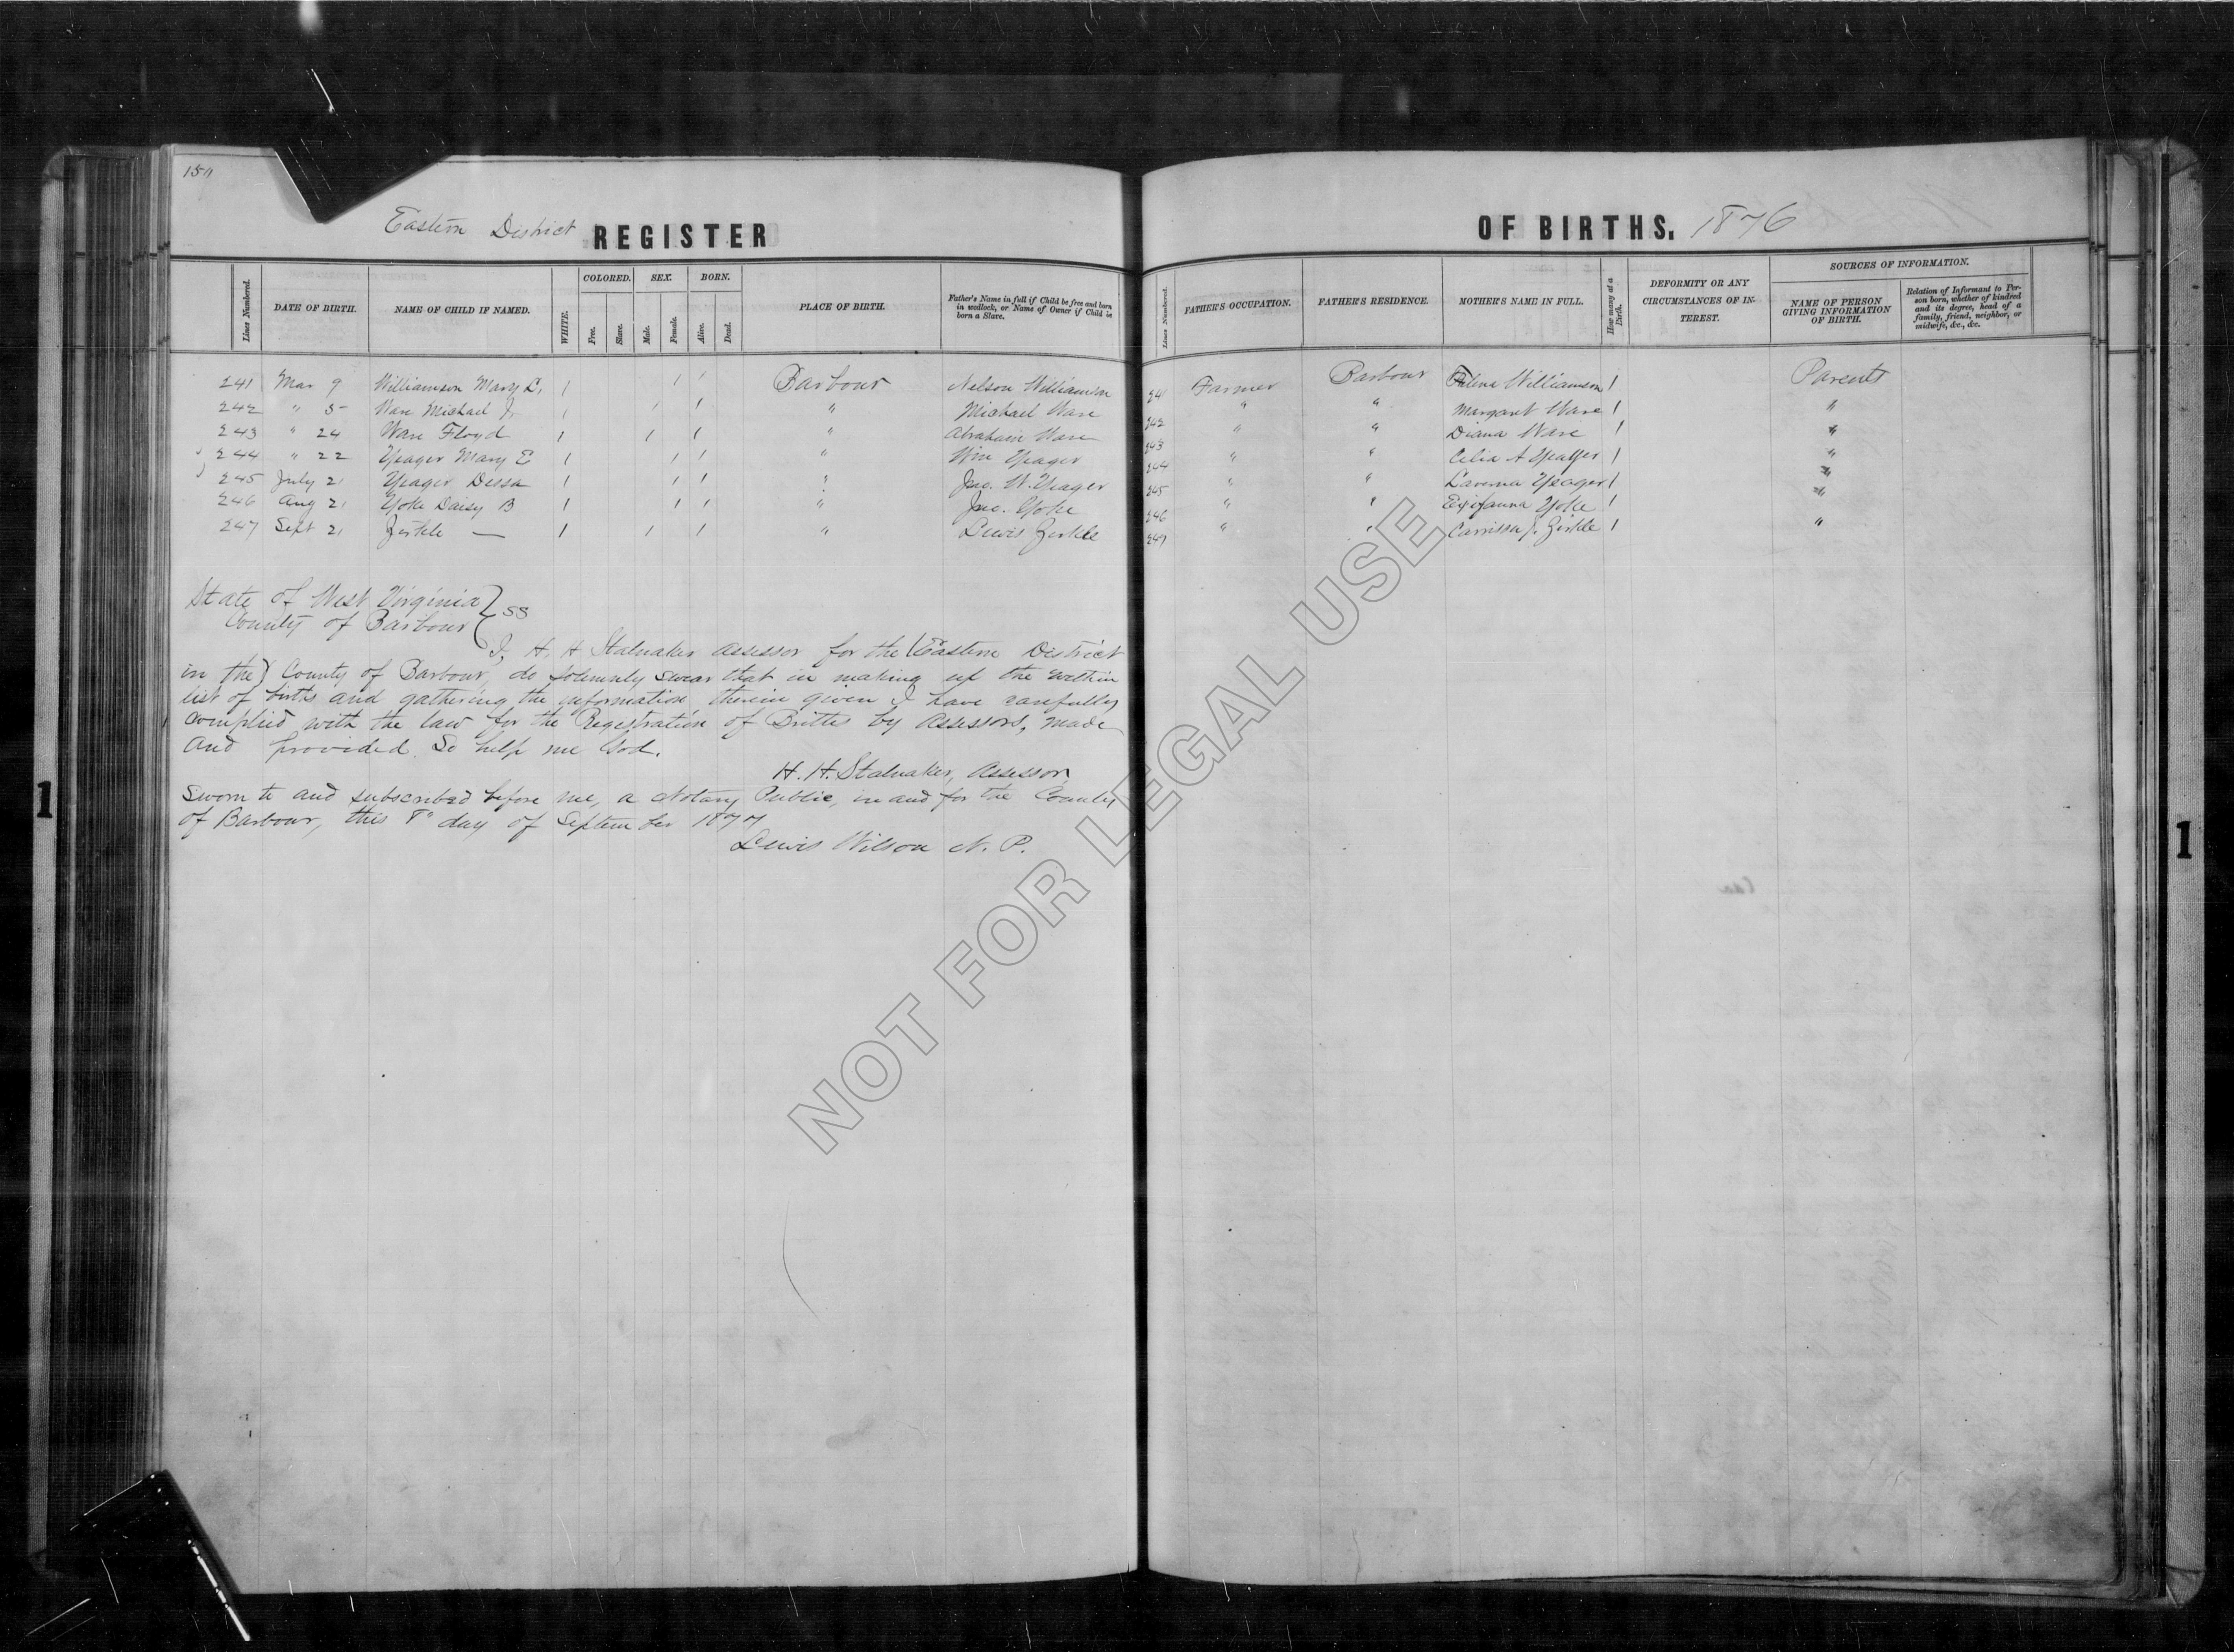 Eastern District REGISTER OF BIRTHS. 1876
Lines Numbered. DATE OF BIRTH. NAME OF CHILD IF NAMED. WHITE. COLORED. Free. Slave. SEX. Male. Female. BORN. Alive. Dead. PLACE OF BIRTH. Father's Name in full if Child be free and born in wedlock, or Name of Owner if Child be born a Slave. Lines Numbered. FATHER'S OCCUPATION. FATHER'S RESIDENCE. MOTHER'S NAME IN FULL. How many at a Birth. DEFORMITY OR ANY CIRCUMSTANCES OF INTEREST. SOURCES OF INFORMATION. NAME OF PERSON GIVING INFORMATION OF BIRTH. Relation of Informant to Person born, whether of kindred and its degree, head of a family, friend, neighbor, or midwife, &c., &c.
241 Mar 9 Williamson Mary L. 1 1 1 Barbour Nelson Williamson 241 Farmer Barbour Williamson 1 Parents
242 " 5 Ware Michael J. 1 1 1 " Michael Ware 242 " " Margaret Ware 1 "
243 " 24 Ware Floyd 1 1 1 " Abraham Ware 243 " " Diana Ware 1 "
244 " 22 Yeager Mary E 1 1 1 " Wm Yeager 244 " " Celia A Yeager 1 "
245 July 21 Yeager Dessa 1 1 1 " Jno. W. Yeager 245 " " Laverna Yeager 1 "
246 Aug 21 Yoke Daisy B 1 1 1 " Jno. Yoke 246 " " Yoke 1 "
247 Sept 21 Zirkle — 1 1 1 " Lewis Zirkle 247 " " Carrissa J. Zirkle 1 "
State of West Virginia } ss
County of Barbour
I, H. H Stalnaker Assessor for the (Eastern District
in the) County of Barbour, do solemnly swear that in making up the within
list of births and gathering the information therein given I have carefully
complied with the law for the Registration of Births by Assessors, made
and provided. So help me God.
H. H. Stalnaker, Assessor
Sworn to and subscribed before me, a Notary Public, in and for the County
of Barbour, this 8" day of September 1877
Lewis Wilson N. P.
NOT FOR LEGAL USE
1
1